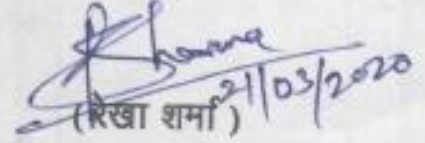 Sharma
21/03/2020
(रेखा शर्मा)